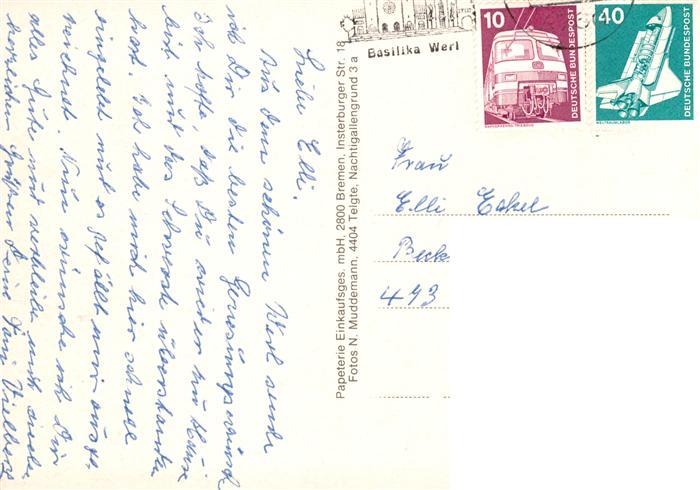 Liebe Elli.
Aus dem schönen Werl sende
ich Dir die besten Genesungswünsche
Ich hoffe daß Du wieder zu Hause
bist und das Schwerste überstanden
hast. Ich habe mich hier schnell
eingelebt und es gefällt mir ausge-
zeichnet. Nun wünsche ich Dir
alles Gute und verbleibe mit
herzlichen Grüßen Deine
Papeterie Einkaufsges. mbH, 2800 Bremen, Insterburger Str. 18
Fotos N. Muddemann, 4404 Telgte, Nachtigallengrund 3 a
Basilika Werl
10
DEUTSCHE BUNDESPOST
40
DEUTSCHE BUNDESPOST
WELTRAUMLABOR
Frau
Elli Eckel
Beck
493